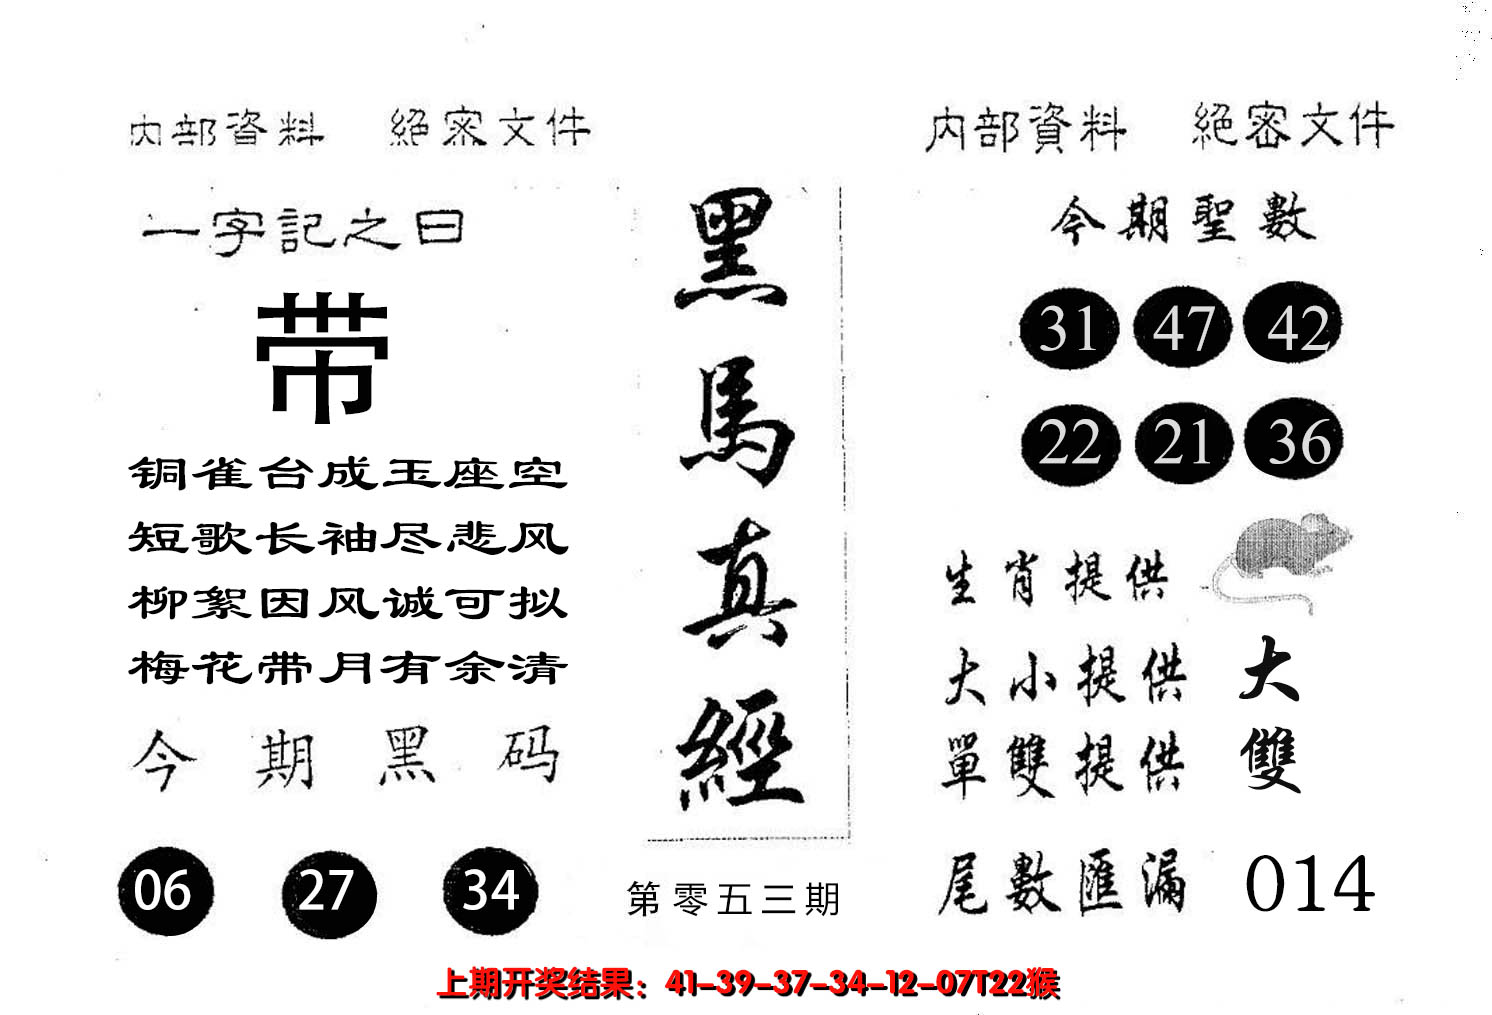 内部資料 絕密文件
一字記之曰
带
铜雀台成玉座空
短歌长袖尽悲风
柳絮因风诚可拟
梅花带月有余清
今期黑码
06 27 34
黑馬真經
第零五三期
内部資料 絕密文件
今期聖數
31 47 42
22 21 36
生肖提供
大小提供 大
單雙提供 雙
尾數匯漏 014
上期开奖结果：41-39-37-34-12-07T22猴